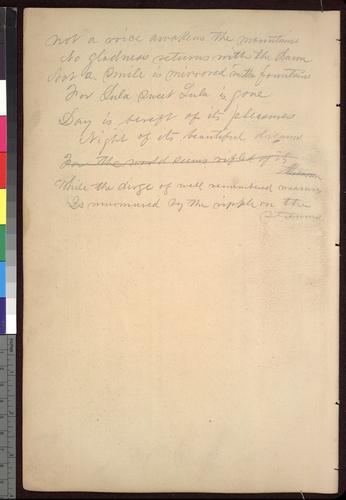 Not a voice awakens the mountains
No gladness returns with the dawn
Not a smile is mirrored in the fountains
For Lula Sweet Lula is gone
Day is bereft of its pleasures
Night of its beautiful dreams
For the world seems rifled of its
While the dirge of well remembered measures
Is murmured by the ripple on the
streams